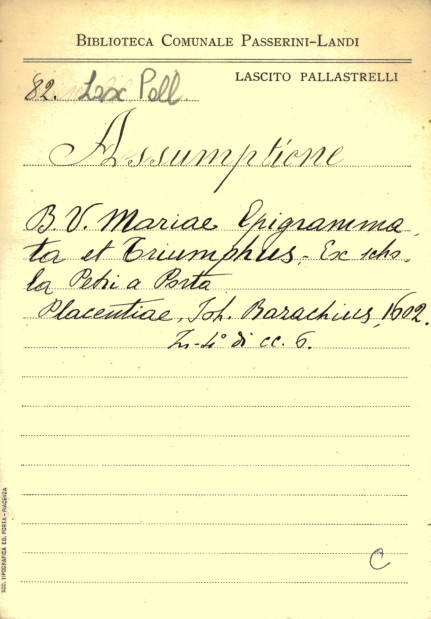 BIBLIOTECA COMUNALE PASSERINI-LANDI
LASCITO PALLASTRELLI
82. Lxx Pall
Assumptione
B. V. Mariae Epigramma
ta et Triumphus. Ex scho-
la Petri a Porta
Placentiae, Joh. Barachius, 1602.
In-4° di cc. 6.
C
SOC. TIPOGRAFICA ED. PORTA - PIACENZA